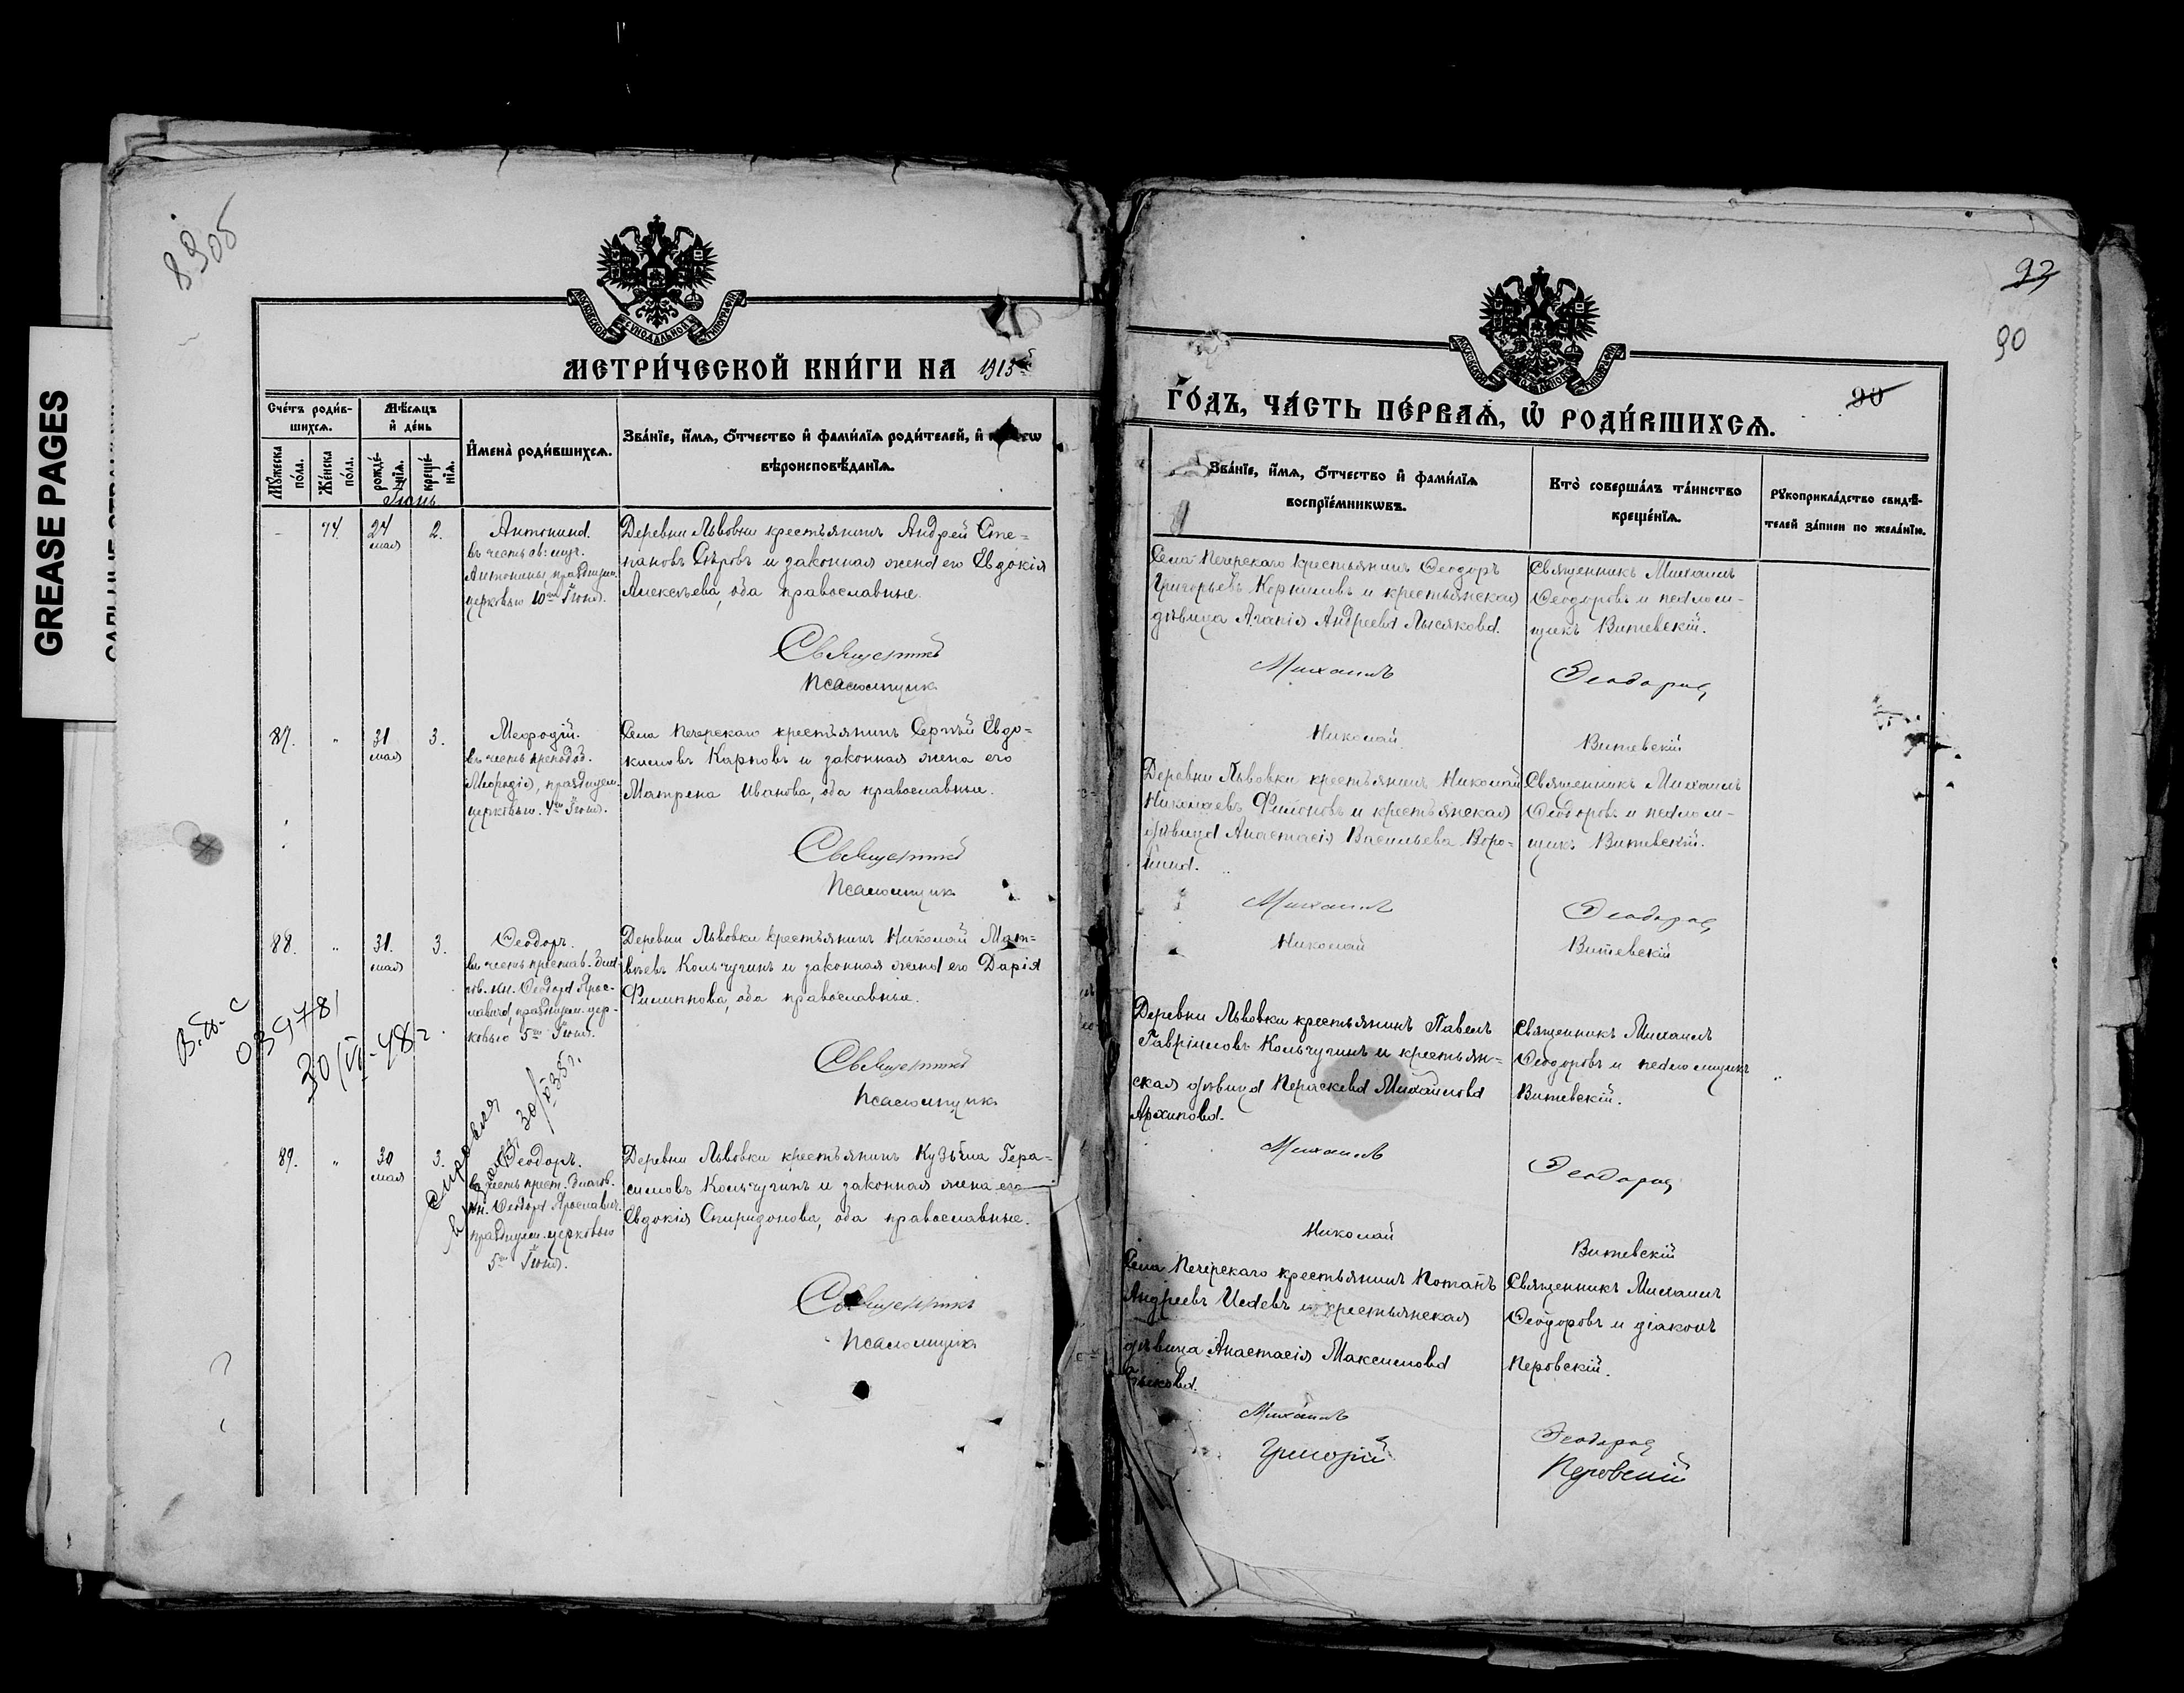 GREASE PAGES
89об
МОСКОВСКОЙ СѴНОДАЛЬНОЙ ТИПОГРАФІИ
МЕТРИ́ЧЕСКОЙ КНИ́ГИ НА 1913й
Сче́тъ роди́в-
шихсѧ.
Мꙋ́жеска по́ла.
Же́нска по́ла.
Мѣ́сѧцъ
и҆ де́нь
рожде́-
нїѧ.
креще́-
нїѧ.
И҆мена̀ роди́вшихсѧ.
Зва́нїе, и҆́мѧ, ѻ҆́тчество и҆ фами́лїѧ роди́телей, и҆
вѣроисповѣ́данїѧ.
Іюнь
- 74. 24 мая 2.
Антонина.
въ честь св: муч.
Антонины, празднуем.
церковью 10го Іюня.
Деревни Львовки крестьянинъ Андрей Сте-
пановъ Сѣровъ и законная жена его Евдокія
Алексѣева, оба православные.
Священникъ
Псаломщикъ
87. " 31 мая 3.
Меѳодій.
въ честь преподоб.
Меѳодія, празднуем.
церковью. 4го Іюня.
Села Печерскаго крестьянинъ Сергѣй Евдо-
кимовъ Карповъ и законная жена его
Матрена Иванова, оба православные.
Священникъ
Псаломщикъ
88. " 31. мая 3.
Ѳеодоръ.
въ честь престав. благ
ов. кн. Ѳеодора Яросл-
лавича, празднуем. цер-
ковью 5го Іюня.
Деревни Львовки крестьянинъ Николай Мат-
вѣевъ Кольчугинъ и законная жена его Дарія
Филиппова, оба православные.
Священникъ
Псаломщикъ
В.
039781
30/VI-48г.
30/ 35г.
89. " 30 мая 3.
Ѳеодоръ.
въ честь прест. благов.
кн. Ѳеодора Ярославич.
празднуем. церковью
5го Іюня.
Деревни Львовки крестьянинъ Кузьма Гера-
симовъ Кольчугинъ и законная жена его
Евдокія Спиридонова, оба православные.
Священникъ
Псаломщикъ
90
90
ГО́ДЪ, ЧА́СТЬ ПЕ́РВАѦ, Ѡ҆ РОДИ́ВШИХСѦ.
Зва́нїе, и҆́мѧ, ѻ҆́тчество и҆ фами́лїѧ
воспрїе́мникѡвъ.
Кто̀ соверша́лъ та́инство
креще́нїѧ.
Рꙋкоприкла́дство свидѣ́-
телей за́писи по жела́нїю.
Села Печерскаго крестьянинъ Ѳеодоръ
Григорьевъ Корниловъ и крестьянская
дѣвица Агапія Андреева Лысякова.
Священникъ Михаилъ
Ѳеодоровъ и псалом-
щикъ Витевскій.
Михаилъ Ѳеодоровъ
Николай Витевскій
Деревни Львовки крестьянинъ Николай
Николаевъ Филоновъ и крестьянская
дѣвица Анастасія Васильева Воро-
нина.
Священникъ Михаилъ
Ѳеодоровъ и псалом-
щикъ Витевскій.
Михаилъ Ѳеодоровъ
Николай Витевскій
Деревни Львовки крестьянинъ Павелъ
Гавріиловъ Кольчугинъ и крестьян-
ская дѣвица Параскева Михайлова
Архипова.
Священникъ Михаилъ
Ѳеодоровъ и псаломщикъ
Витевскій.
Михаилъ Ѳеодоровъ
Николай Витевскій
Села Печерскаго крестьянинъ Потапъ
Андреевъ и крестьянская
дѣвица Анастасія Максимова
Священникъ Михаилъ
Ѳеодоровъ и діаконъ
Перовскій.
Михаилъ Ѳеодоровъ
Григорій Перовскій